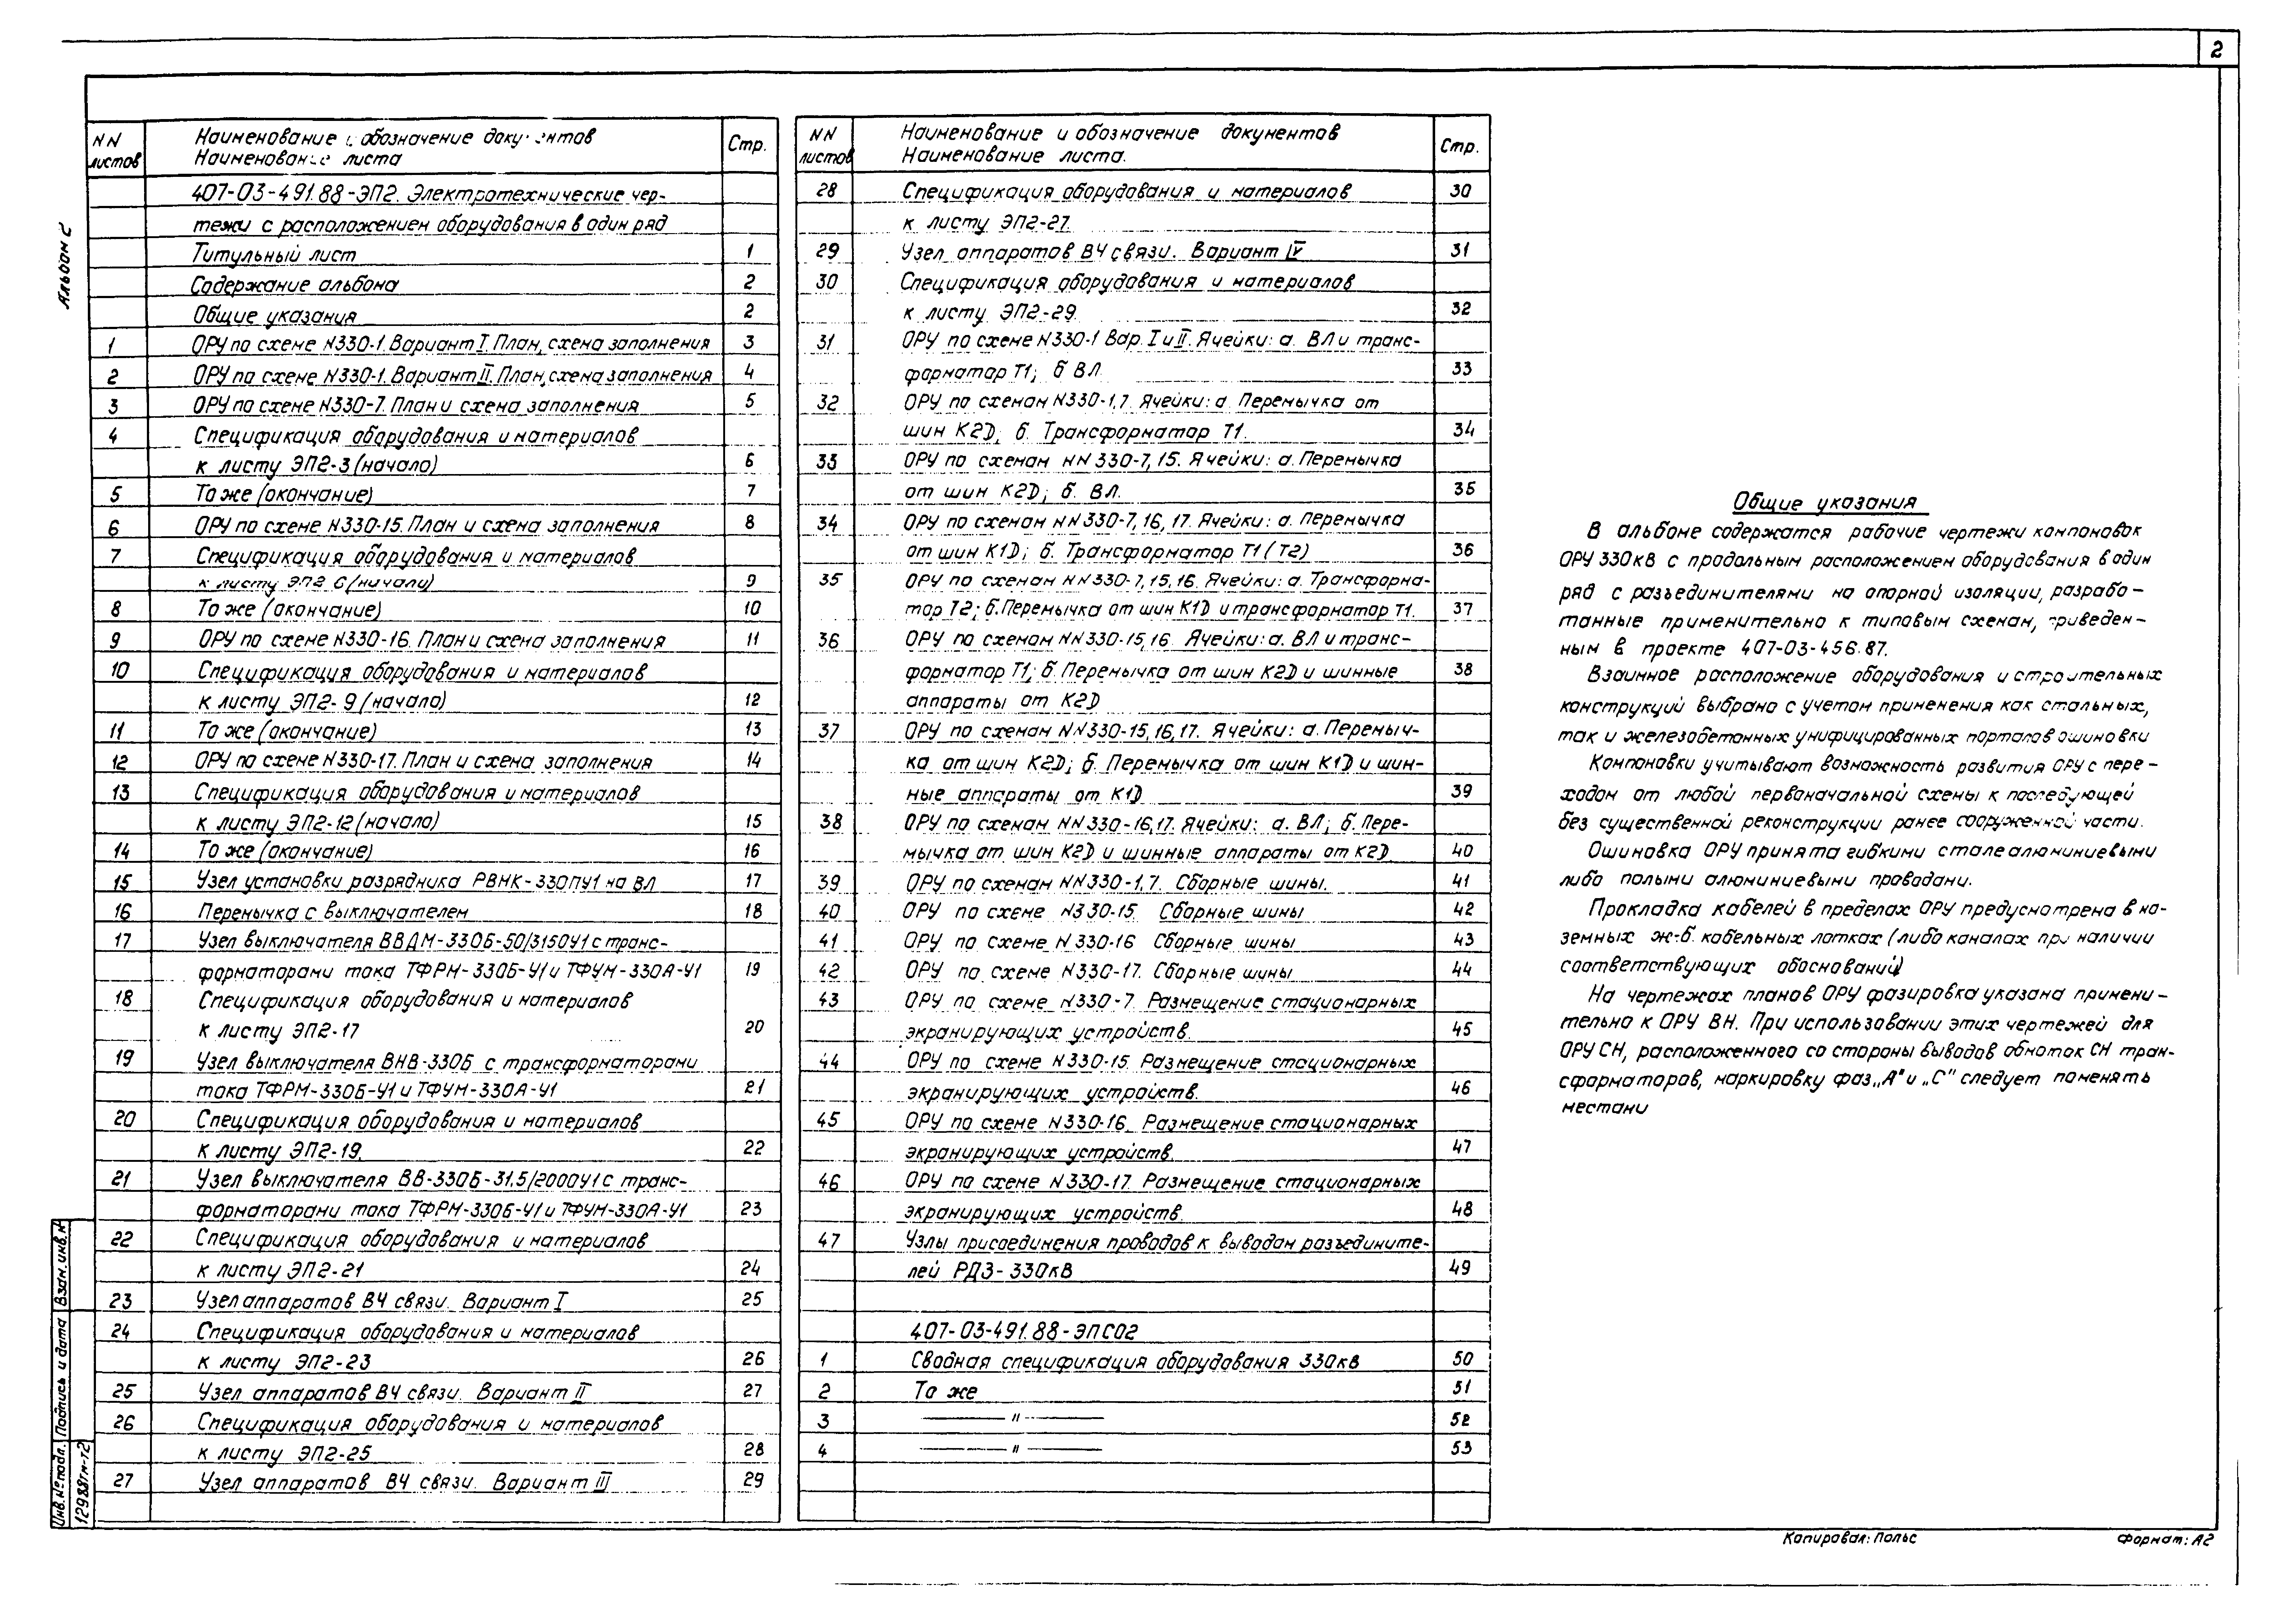 2
Альбом 2
NN листов
Наименование и обозначение документов
Наименование листа
Стр.
407-03-491.88-ЭП2. Электротехнические чер-
тежи с расположением оборудования в один ряд
Титульный лист 1
Содержание альбома 2
Общие указания 2
1 ОРУ по схеме N330-1. Вариант I. План, схема заполнения 3
2 ОРУ по схеме N330-1. Вариант II. План, схема заполнения 4
3 ОРУ по схеме N330-7. План и схема заполнения 5
4 Спецификация оборудования и материалов
к листу ЭП2-3 (начало) 6
5 То же (окончание) 7
6 ОРУ по схеме N330-15. План и схема заполнения 8
7 Спецификация оборудования и материалов
к листу ЭП2 6 (начало) 9
8 То же (окончание) 10
9 ОРУ по схеме N330-16. План и схема заполнения 11
10 Спецификация оборудования и материалов
к листу ЭП2-9 (начало) 12
11 То же (окончание) 13
12 ОРУ по схеме N330-17. План и схема заполнения 14
13 Спецификация оборудования и материалов
к листу ЭП2-12 (начало) 15
14 То же (окончание) 16
15 Узел установки разрядника РВМК-330ПУ1 на ВЛ 17
16 Перемычка с выключателем 18
17 Узел выключателя ВВДМ-330Б-50/3150У1 с транс-
форматорами тока ТФРМ-330Б-У1 и ТФУМ-330А-У1 19
18 Спецификация оборудования и материалов
к листу ЭП2-17 20
19 Узел выключателя ВНВ-330Б с трансформаторами
тока ТФРМ-330Б-У1 и ТФУМ-330А-У1 21
20 Спецификация оборудования и материалов
к листу ЭП2-19. 22
21 Узел выключателя ВВ-330Б-31.5/2000У1 с транс-
форматорами тока ТФРМ-330Б-У1 и ТФУМ-330А-У1 23
22 Спецификация оборудования и материалов
к листу ЭП2-21 24
23 Узел аппаратов ВЧ связи. Вариант I 25
24 Спецификация оборудования и материалов
к листу ЭП2-23 26
25 Узел аппаратов ВЧ связи. Вариант II 27
26 Спецификация оборудования и материалов
к листу ЭП2-25 28
27 Узел аппаратов ВЧ связи. Вариант III 29
NN листов
Наименование и обозначение документов
Наименование листа.
Стр.
28 Спецификация оборудования и материалов 30
к листу ЭП2-27.
29 Узел аппаратов ВЧ связи. Вариант IV 31
30 Спецификация оборудования и материалов
к листу ЭП2-29 32
31 ОРУ по схеме N330-1 Вар. I и II. Ячейки: а. ВЛ и транс-
форматор Т1; б ВЛ 33
32 ОРУ по схемам N330-1,7. Ячейки: а. Перемычка от
шин К2D; б. Трансформатор Т1. 34
33 ОРУ по схемам NN330-7, 15. Ячейки: а. Перемычка
от шин К2D; б. ВЛ. 35
34 ОРУ по схемам NN330-7, 16, 17. Ячейки: а. Перемычка
от шин К1D; б. Трансформатор Т1 (Т2) 36
35 ОРУ по схемам NN330-7, 15, 16. Ячейки: а. Трансформа-
тор Т2; б. Перемычка от шин К1D и трансформатор Т1. 37
36 ОРУ по схемам NN330-15, 16. Ячейки: а. ВЛ и транс-
форматор Т1; б. Перемычка от шин К2D и шинные 38
аппараты от К2D
37 ОРУ по схемам NN330-15, 16, 17. Ячейки: а. Перемыч-
ка от шин К2D; б. Перемычка от шин К1D и шин-
ные аппараты от К1D 39
38 ОРУ по схемам NN330-16,17. Ячейки: а. ВЛ; б. Пере-
мычка от шин К2D и шинные аппараты от К2D 40
39 ОРУ по схемам NN330-1,7. Сборные шины. 41
40 ОРУ по схеме N330-15. Сборные шины 42
41 ОРУ по схеме N330-16 Сборные шины 43
42 ОРУ по схеме N330-17. Сборные шины 44
43 ОРУ по схеме N330-7. Размещение стационарных
экранирующих устройств. 45
44 ОРУ по схеме N330-15. Размещение стационарных
экранирующих устройств. 46
45 ОРУ по схеме N330-16. Размещение стационарных
экранирующих устройств. 47
46 ОРУ по схеме N330-17. Размещение стационарных
экранирующих устройств. 48
47 Узлы присоединения проводов к выводам разъедините-
лей РДЗ-330кВ 49
407-03-491.88-ЭПСО2
1 Сводная спецификация оборудования 330кВ 50
2 То же 51
3 —— " —— 52
4 —— " —— 53
Общие указания
В альбоме содержатся рабочие чертежи компоновок
ОРУ 330кВ с продольным расположением оборудования в один
ряд с разъединителями на опорной изоляции, разрабо-
танные применительно к типовым схемам, приведен-
ным в проекте 407-03-456.87.
Взаимное расположение оборудования и строительных
конструкций выбрано с учетом применения как стальных,
так и железобетонных унифицированных порталов ошиновки
Компоновки учитывают возможность развития ОРУ с пере-
ходом от любой первоначальной схемы к последующей
без существенной реконструкции ранее сооруженной части.
Ошиновка ОРУ принята гибкими сталеалюминиевыми
либо полыми алюминиевыми проводами.
Прокладка кабелей в пределах ОРУ предусмотрена в на-
земных ж-б. кабельных лотках (либо каналах при наличии
соответствующих обоснований)
На чертежах планов ОРУ фазировка указана примени-
тельно к ОРУ ВН. При использовании этих чертежей для
ОРУ СН, расположенного со стороны выводов обмоток СН тран-
сформаторов, маркировку фаз „А" и „С" следует поменять
местами
Взам. инв. N
Подпись и дата
Инв. № подл.
12988тм-т2
Копировал: Польс
Формат: А2